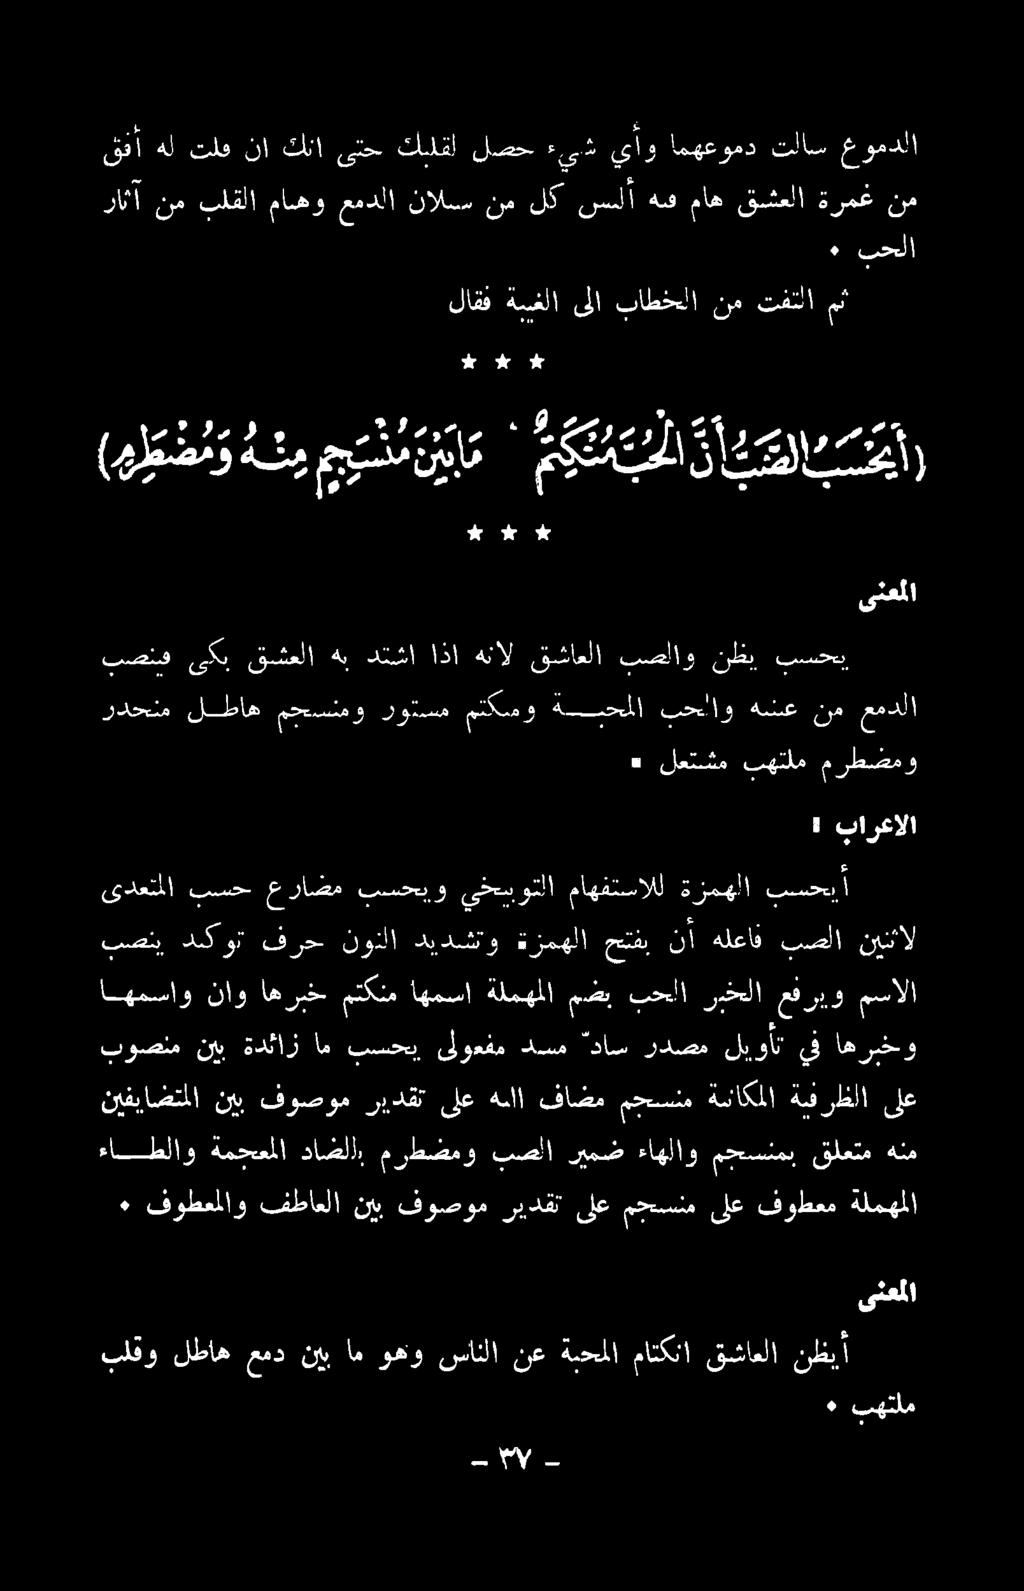 الدموع سالت دموعهما وأي شيء حصل لقلبك حتى انك ان قلت له أفق
من غمرة العشق هام فيه أليس كل من سيلان الدمع وهيام القلب من آثار
الحب •
ثم التفت من الخطاب الى الغيبة فقال
★ ★ ★
(أَيَحْسَبُ الصَّبُّ أَنَّ الْحُبَّ مُنْكَتِمٌ مَا بَيْنَ مُنْسَجِمٍ مِنْهُ وَمُضْطَرِمِ)
★ ★ ★
المعنى
يحسب يظن والصب العاشق لانه اذا اشتد به العشق بكى فينصب
الدمع من عينيه والحب المحبــة ومكتم مستور ومنسجم هاطــل منحدر
ومضطرم ملتهب مشتعل •
الاعراب :
أيحسب الهمزة للاستفهام التوبيخي ويحسب مضارع حسب المتعدى
لاثنين الصب فاعله أن بفتح الهمزة وتشديد النون حرف توكيد ينصب
الاسم ويرفع الخبر الحب بضم المهملة اسمها منكتم خبرها وان واسمهــا
وخبرها في تأويل مصدر سادّ مسد مفعولى يحسب ما زائدة بين منصوب
على الظرفية المكانية منسجم مضاف اليه على تقدير موصوف بين المتضايفين
منه متعلق بمنسجم والهاء ضمير الصب ومضطرم بالضاد المعجمة والطــاء
المهملة معطوف على منسجم على تقدير موصوف بين العاطف والمعطوف •
المعنى
أيظن العاشق انكتام المحبة عن الناس وهو ما بين دمع هاطل وقلب
ملتهب •
– ٣٧ –